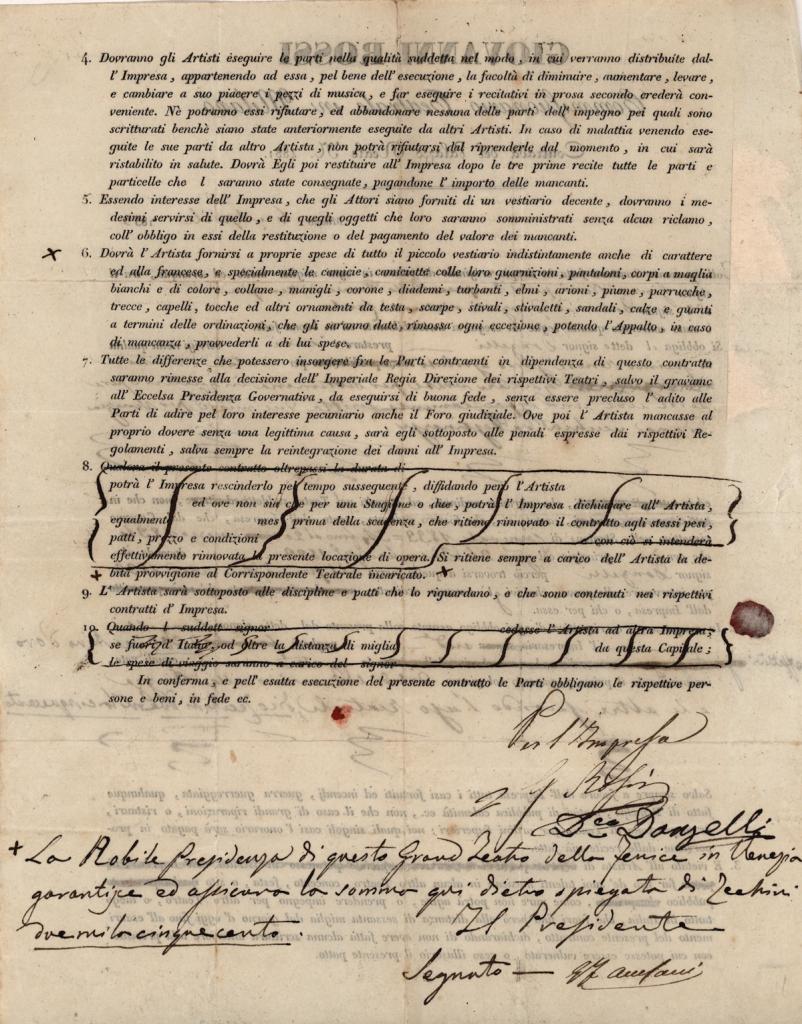 GIOVANNI ROSSI
4. Dovranno gli Artisti eseguire le parti nella qualità suddetta nel modo, in cui verranno distribuite dal-
l' Impresa, appartenendo ad essa, pel bene dell' esecuzione, la facoltà di diminuire, aumentare, levare,
e cambiare a suo piacere i pezzi di musica, e far eseguire i recitativi in prosa secondo crederà con-
veniente. Nè potranno essi rifiutare, ed abbandonare nessuna delle parti dell' impegno pei quali sono
scritturati benchè siano state anteriormente eseguite da altri Artisti. In caso di malattia venendo ese-
guite le sue parti da altro Artista, non potrà rifiutarsi dal riprenderle dal momento, in cui sarà
ristabilito in salute. Dovrà Egli poi restituire all' Impresa dopo le tre prime recite tutte le parti e
particelle che l saranno state consegnate, pagandone l' importo delle mancanti.
5. Essendo interesse dell' Impresa, che gli Attori siano forniti di un vestiario decente, dovranno i me-
desimi servirsi di quello, e di quegli oggetti che loro saranno somministrati senza alcun riclamo,
coll' obbligo in essi della restituzione o del pagamento del valore dei mancanti.
x 6. Dovrà l' Artista fornirsi a proprie spese di tutto il piccolo vestiario indistintamente anche di carattere
ed alla francese, e specialmente le camicie, camiciotte colle loro guarnizioni, pantaloni, corpi a maglia
bianchi e di colore, collane, manigli, corone, diademi, turbanti, elmi, arioni, piume, parrucche,
trecce, capelli, tocche ed altri ornamenti da testa, scarpe, stivali, stivaletti, sandali, calze e guanti
a termini delle ordinazioni, che gli saranno date, rimossa ogni eccezione, potendo l' Appalto, in caso
di mancanza, provvederli a di lui spese.
7. Tutte le differenze che potessero insorgere fra le Parti contraenti in dipendenza di questo contratto
saranno rimesse alla decisione dell' Imperiale Regia Direzione dei rispettivi Teatri, salvo il gravame
all' Eccelsa Presidenza Governativa, da eseguirsi di buona fede, senza essere precluso l' adito alle
Parti di adire pel loro interesse pecuniario anche il Foro giudiziale. Ove poi l' Artista mancasse al
proprio dovere senza una legittima causa, sarà egli sottoposto alle penali espresse dai rispettivi Re-
golamenti, salva sempre la reintegrazione dei danni all' Impresa.
8. Qualora il presente contratto oltrepassi la durata di
potrà l' Impresa rescinderlo pel tempo susseguente, diffidando però l' Artista
ed ove non sia che per una Stagione o due, potrà l' Impresa dichiarare all' Artista,
egualmente mes prima della scadenza, che ritiene rinnovato il contratto agli stessi pesi,
patti, prezzo e condizioni con ciò si intenderà
effettivamente rinnovata la presente locazione di opera. Si ritiene sempre a carico dell' Artista la de-
+ bita provvigione al Corrispondente Teatrale incaricato. +
9. L' Artista sarà sottoposto alle discipline e patti che lo riguardano, e che sono contenuti nei rispettivi
contratti d' Impresa.
10. Quando l suddett signor cedesse l' Artista ad altra Impresa;
se fuori d' Italia, od oltre la distanza di miglia da questa Capitale;
le spese di viaggio saranno a carico del signor
In conferma, e pell' esatta esecuzione del presente contratto le Parti obbligano le rispettive per-
sone e beni, in fede ec.
Per l'Impresa
Dco Donzelli
+ La Nobile Presidenza di questo Grand Teatro della Fenice in Venezia
garantisce ed assicura la somma qui dietro spiegata di Zecchini
due mila cinquecento.
Il Presidente
Segnato —